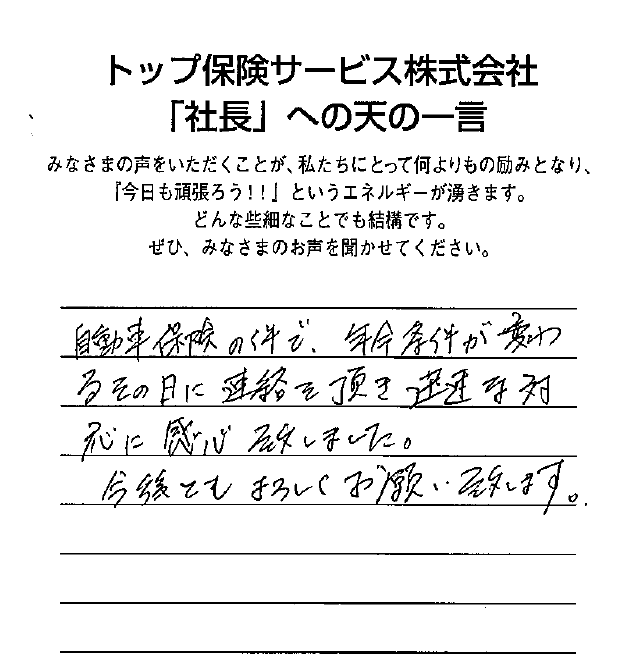 トップ保険サービス株式会社
「社長」への天の一言
みなさまの声をいただくことが、私たちにとって何よりもの励みとなり、
『今日も頑張ろう!!』というエネルギーが湧きます。
どんな些細なことでも結構です。
ぜひ、みなさまのお声を聞かせてください。
自動車保険の件で、年令条件が変わ
るその日に連絡を頂き迅速な対
応に感心致しました。
今後ともよろしくお願い致します。